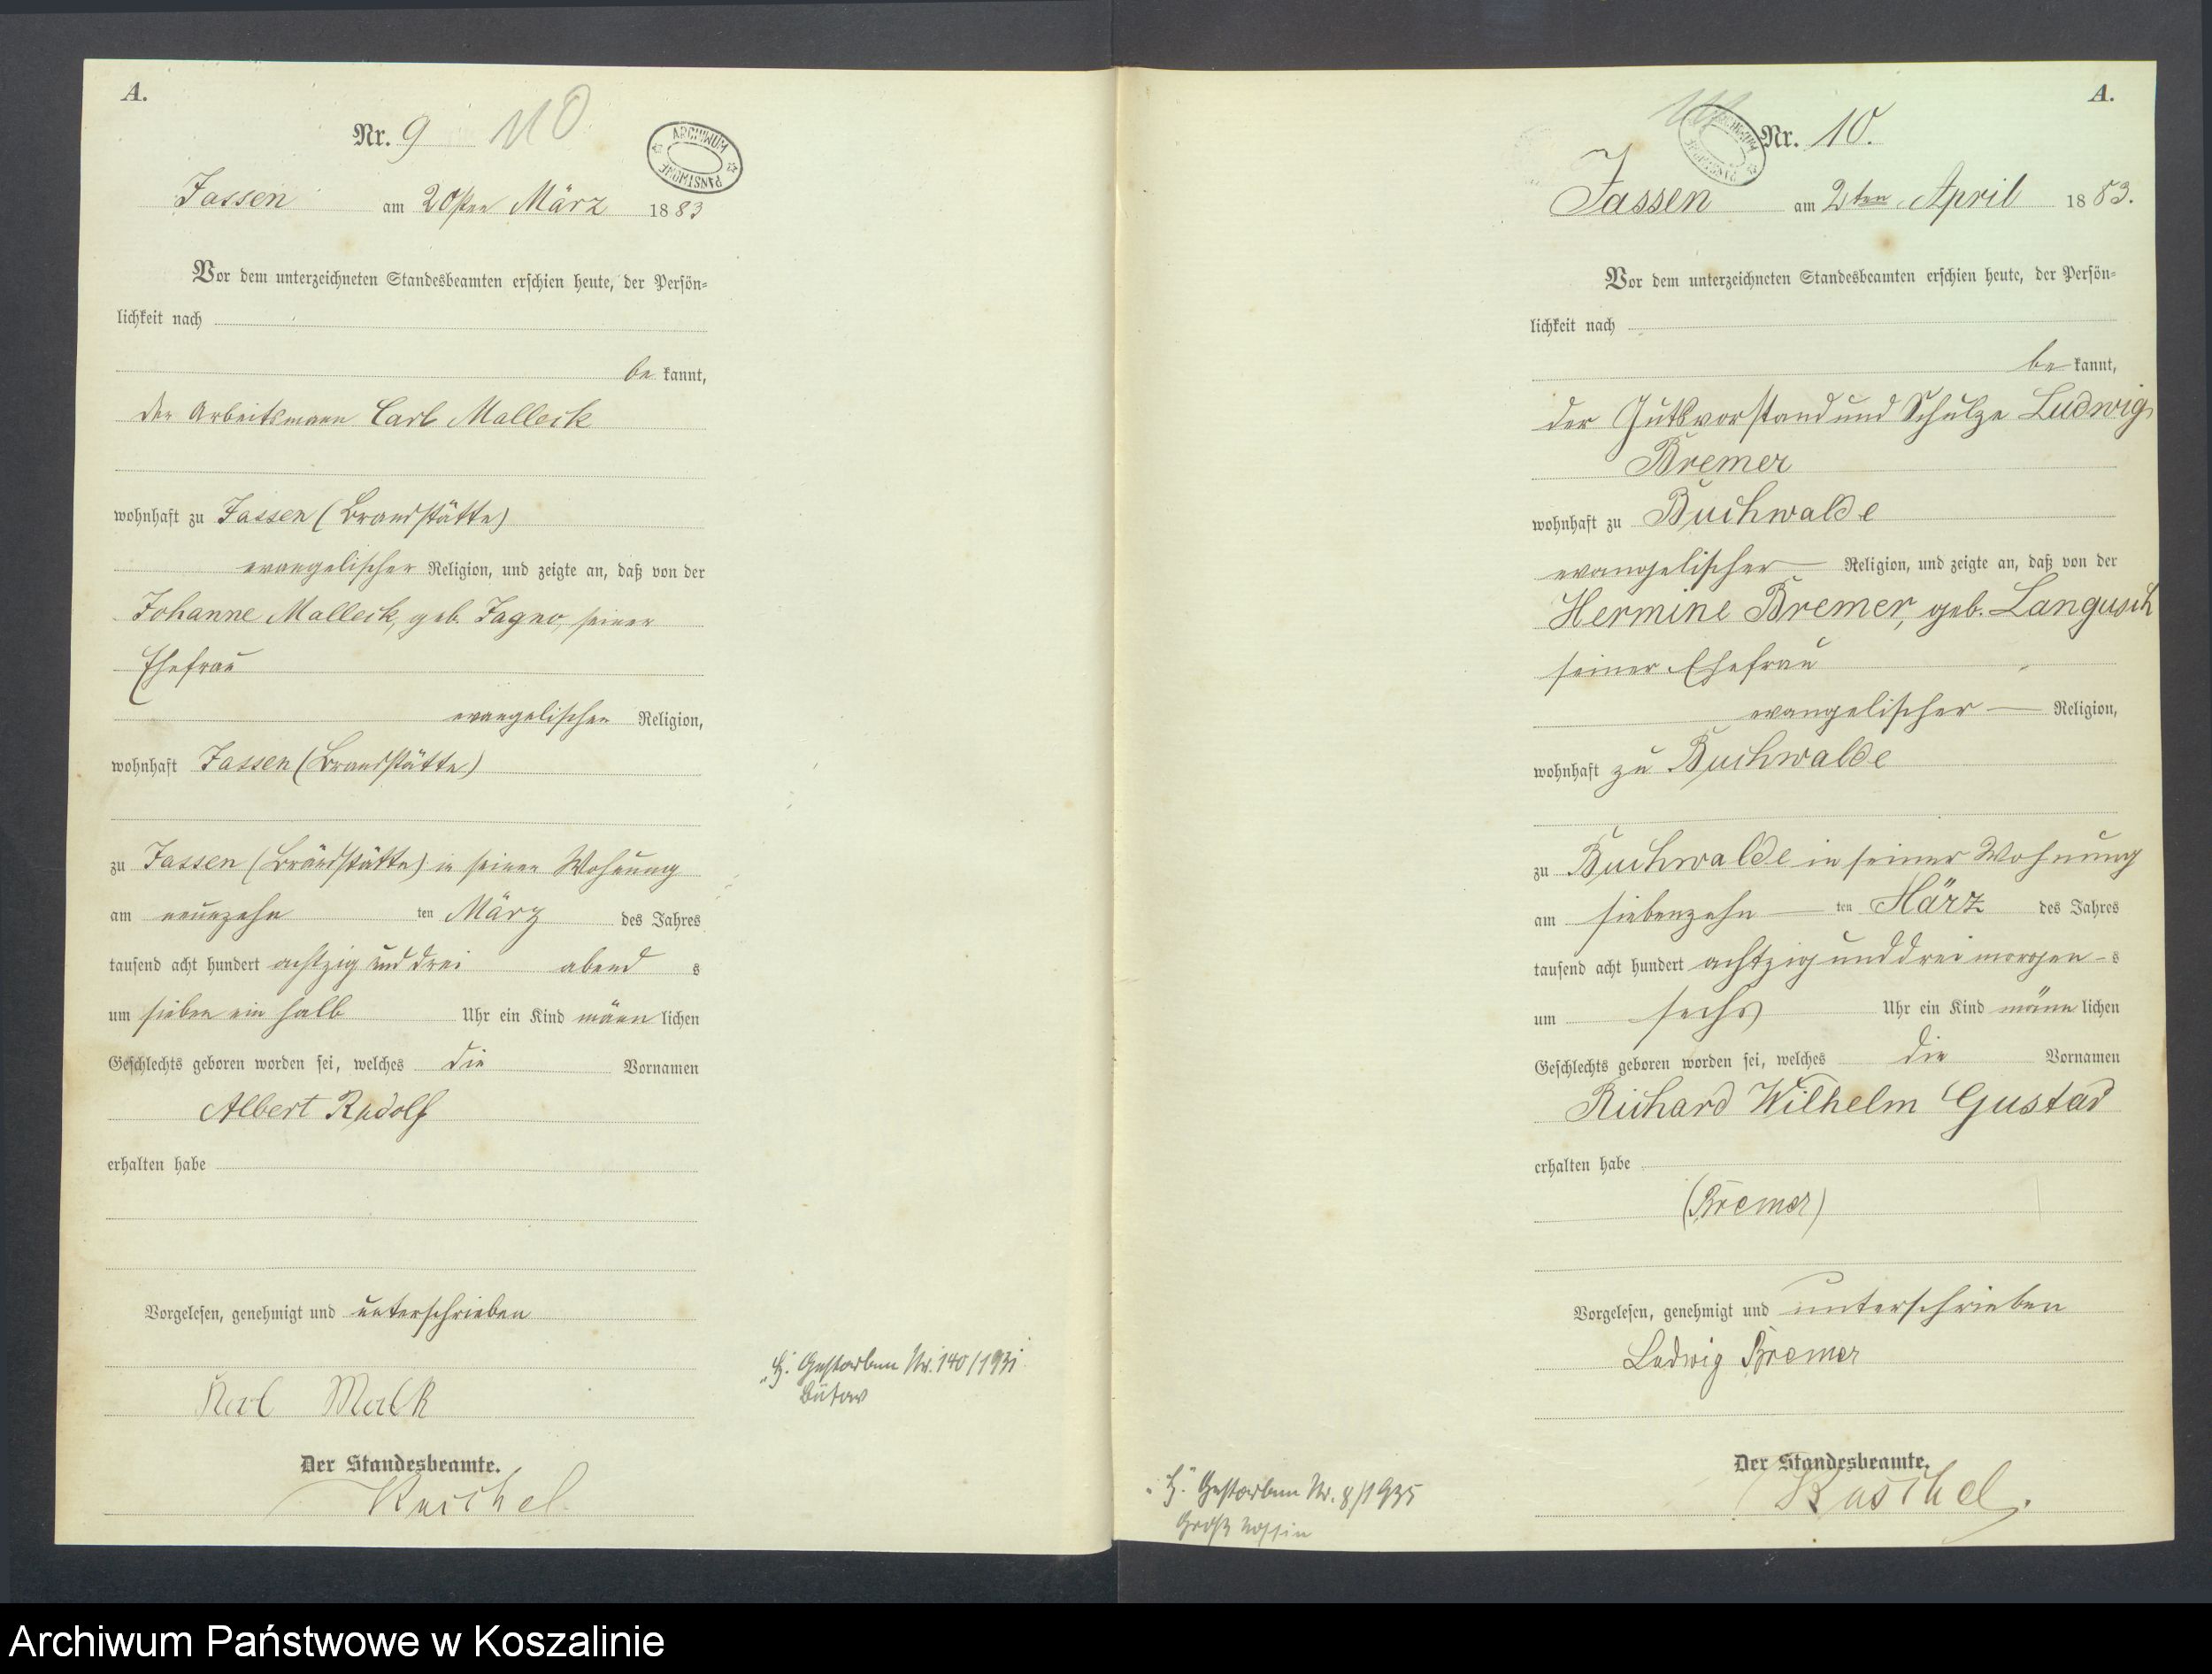 A.
Nr. 9
110
ARCHIWUM PAŃSTWOWE
Jassen am 20sten März 1883
Vor dem unterzeichneten Standesbeamten erschien heute, der Persön-
lichkeit nach
be kannt,
der Arbeitsmann Carl Malleck
wohnhaft zu Jassen (Brandstätte)
evangelischer Religion, und zeigte an, daß von der
Johanne Malleck, geb. Jagno, seiner
Ehefrau
evangelischer Religion,
wohnhaft Jassen (Brandstätte)
zu Jassen (Brandstätte) in seiner Wohnung
am neunzehn ten März des Jahres
tausend acht hundert achtzig und drei abend s
um sieben ein halb Uhr ein Kind männ lichen
Geschlechts geboren worden sei, welches die Vornamen
Albert Rudolf
erhalten habe
Vorgelesen, genehmigt und unterschrieben
Karl Malk
Der Standesbeamte.
Kuschel
H: Gestorben Nr. 140/1931
Bütow
A.
Nr. 10.
ARCHIWUM PAŃSTWOWE
Jassen am 2ten April 1883.
Vor dem unterzeichneten Standesbeamten erschien heute, der Persön-
lichkeit nach
be kannt,
der Gutsvorstand und Schulze Ludwig
Bremer
wohnhaft zu Buchwalde
evangelischer Religion, und zeigte an, daß von der
Hermine Bremer, geb. Langusch
seiner Ehefrau
evangelischer Religion,
wohnhaft zu Buchwalde
zu Buchwalde in seiner Wohnung
am siebenzehn ten März des Jahres
tausend acht hundert achtzig und drei morgen s
um sechs Uhr ein Kind männ lichen
Geschlechts geboren worden sei, welches die Vornamen
Richard Wilhelm Gustav
erhalten habe
(Bremer)
Vorgelesen, genehmigt und unterschrieben
Ludwig Bremer
Der Standesbeamte.
Kuschel.
"H." Gestorben Nr. 8/1935
Groß Nossin
Archiwum Państwowe w Koszalinie